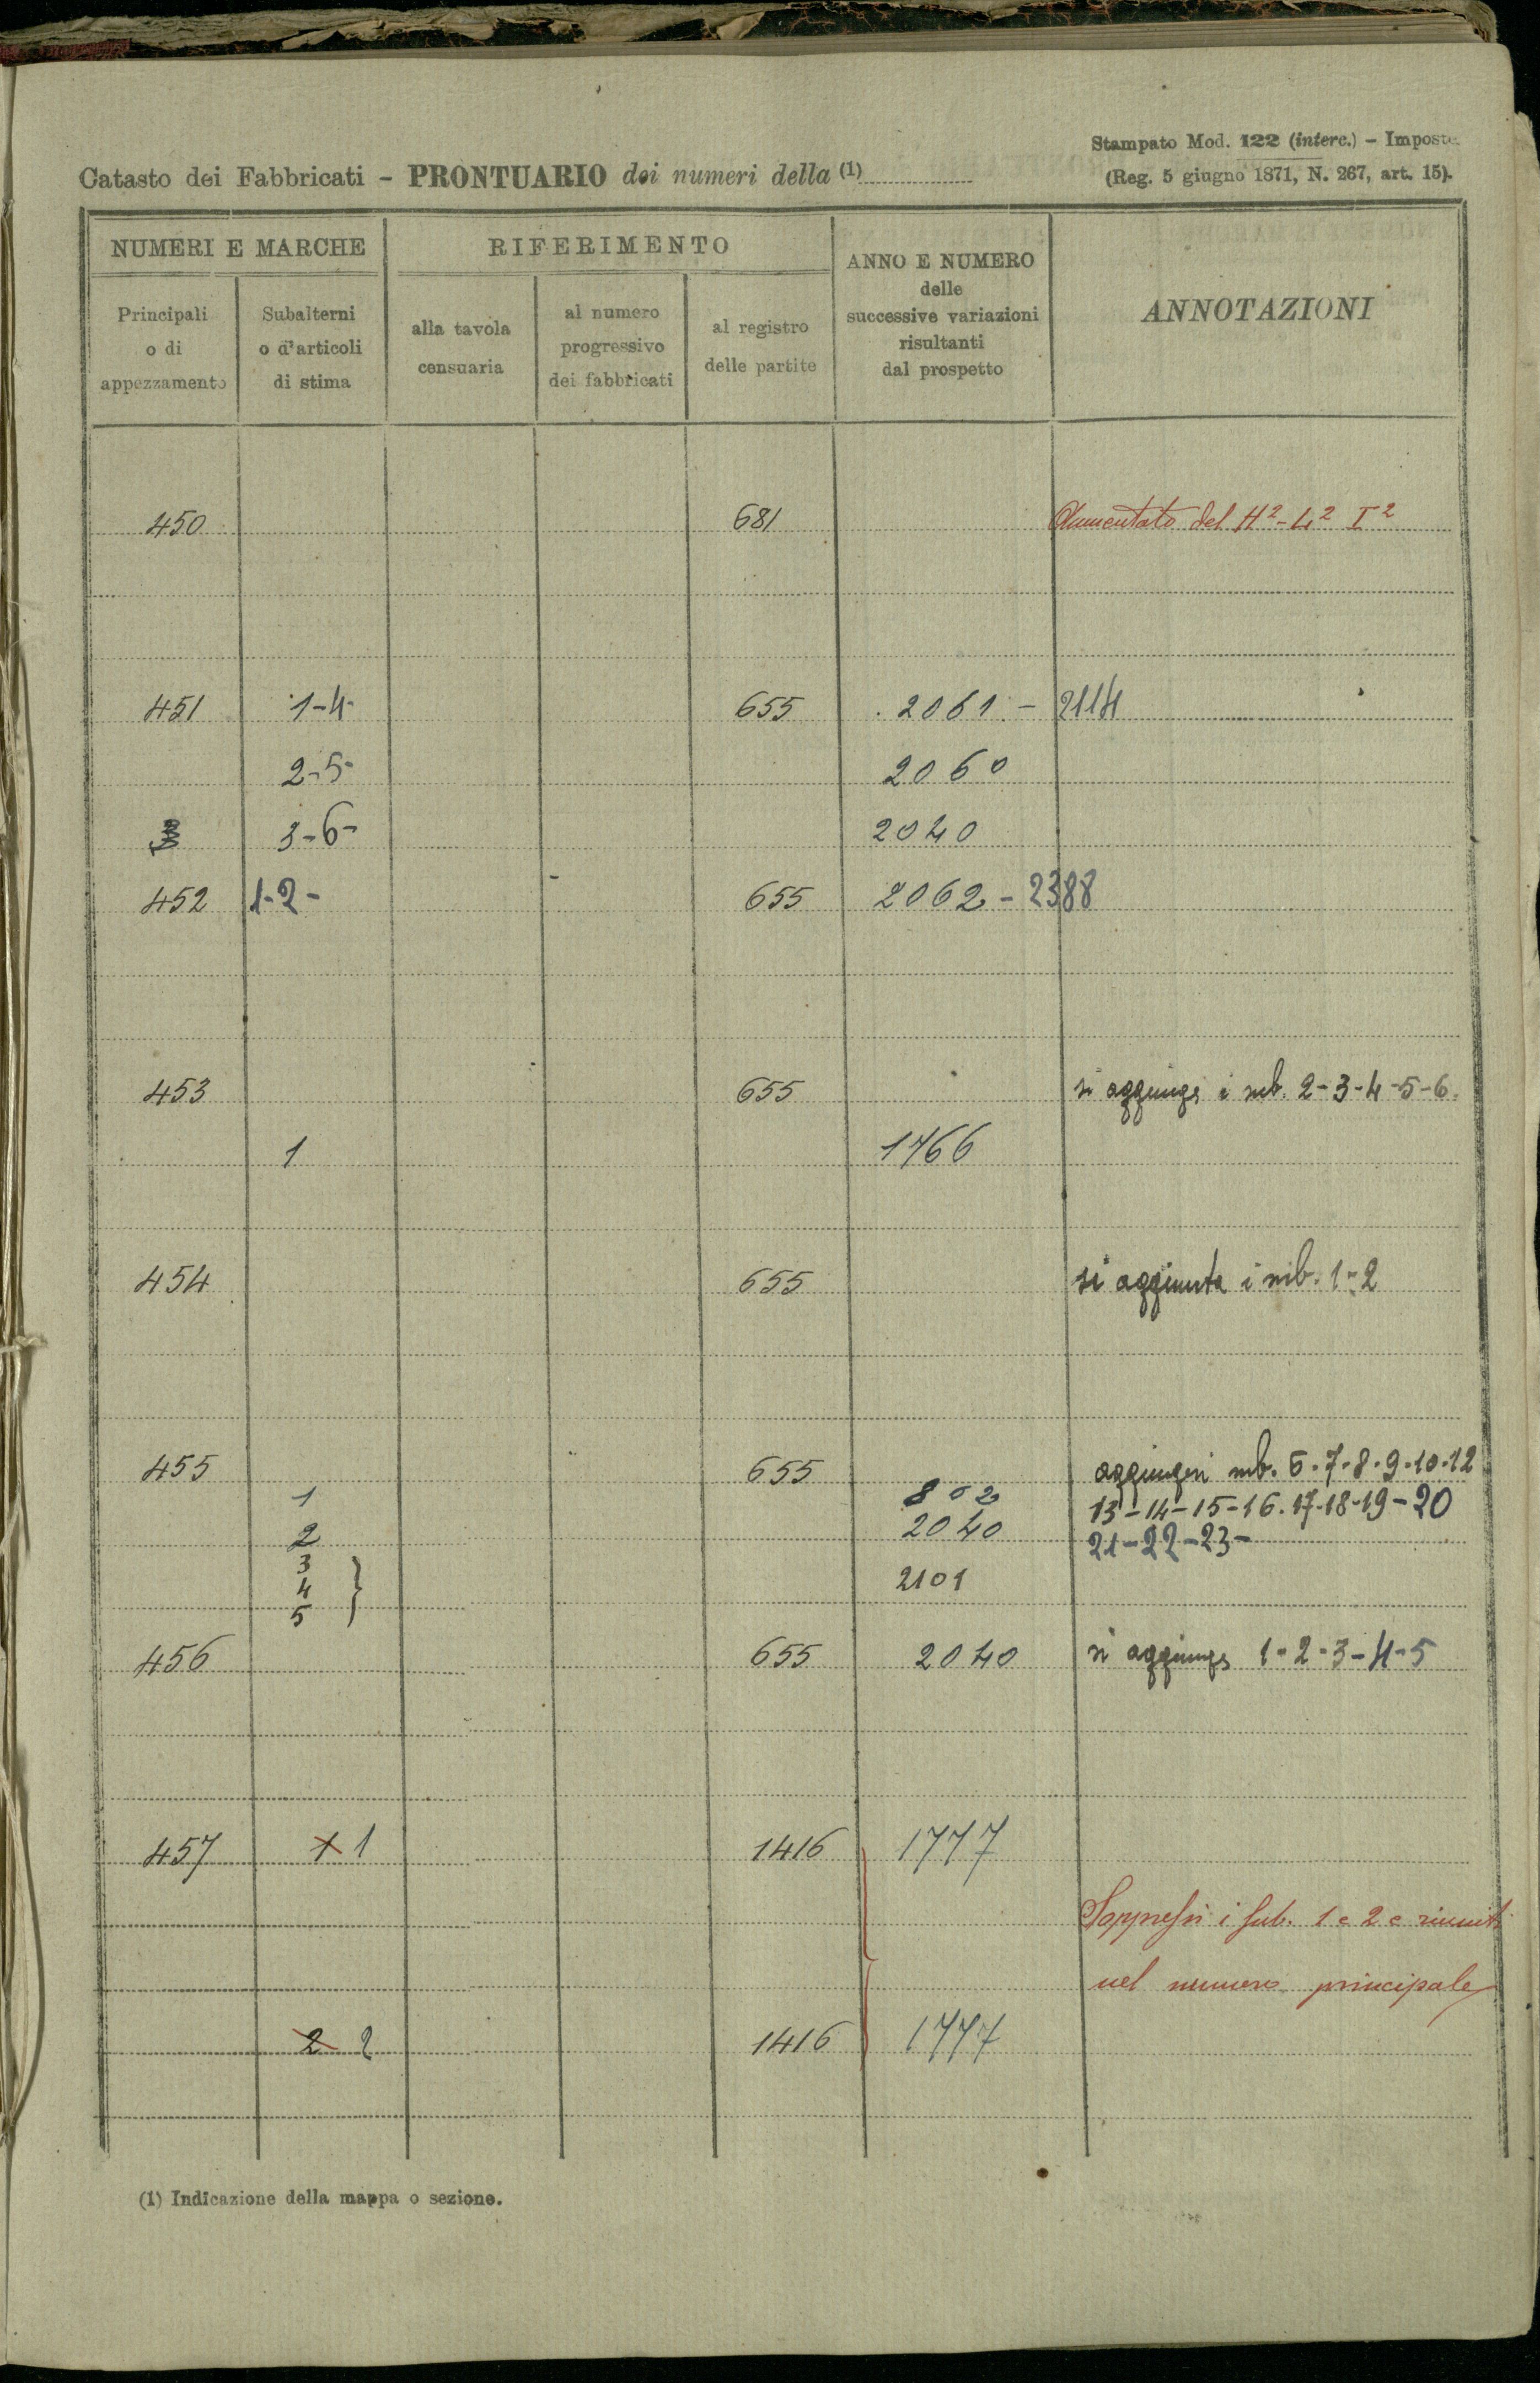 Stampato Mod. 122 (interc.) - Imposte
Catasto dei Fabbricati - PRONTUARIO dei numeri della (1)
(Reg. 5 giugno 1871, N. 267, art. 15).
NUMERI E MARCHE
RIFERIMENTO
ANNO E NUMERO
delle
successive variazioni
risultanti
dal prospetto
ANNOTAZIONI
Principali
o di
appezzamento
Subalterni
o d'articoli
di stima
alla tavola
censuaria
al numero
progressivo
dei fabbricati
al registro
delle partite
450 681 Aumentato del H² - L² I²
451 1-4- 655 2061 - 2114
2-5- 2060
3-6- 2040
452 1-2- 655 2062 - 2388
453 655 si aggiunge i sub. 2-3-4-5-6.
1 1766
454 655 si aggiunta i sub. 1-2
455 655 aggiungesi sub. 6-7-8-9-10-12
1 802 13-14-15-16-17-18-19-20
2 2040 21-22-23-
3
4 } 2101
5
456 655 2040 si aggiunge 1-2-3-4-5
457 1 1 1416 1777
Soppressi i sub. 1 e 2 e riuniti
nel numero principale
2 2 1416 1777
(1) Indicazione della mappa o sezione.